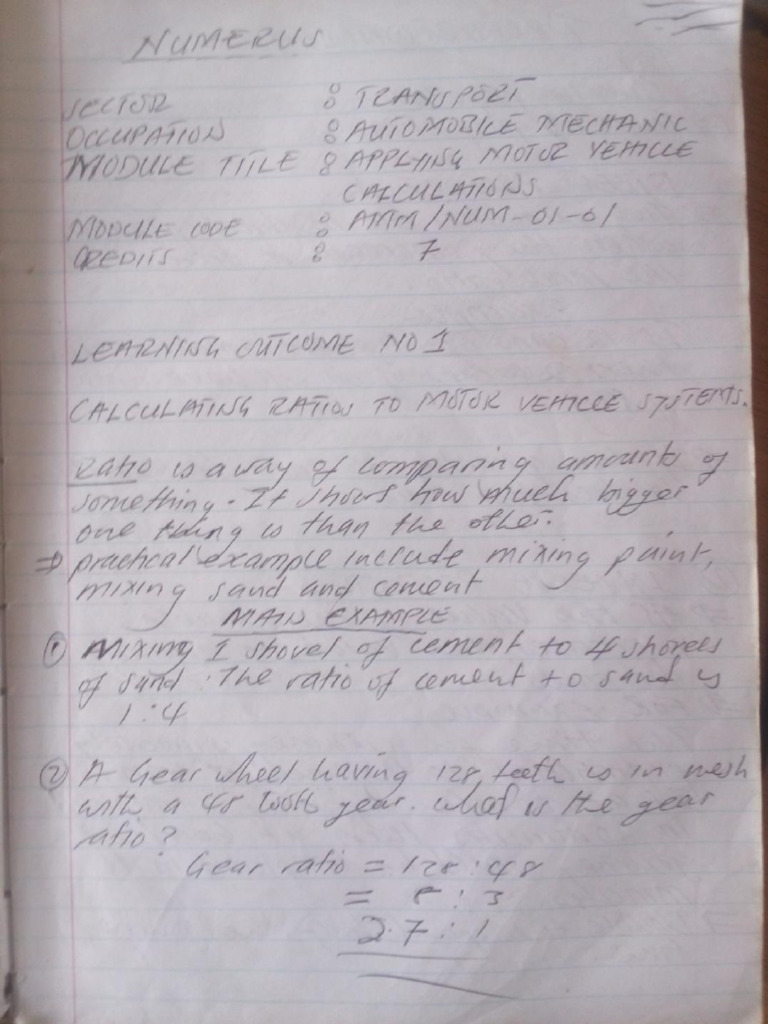 NUMERUS
SECTOR : TRANSPORT
OCCUPATION : AUTOMOBILE MECHANIC
MODULE TITLE : APPLYING MOTOR VEHICLE
CALCULATIONS
MODULE CODE : AMM/NUM-01-01
CREDITS : 7
LEARNING OUTCOME NO 1
CALCULATING RATIOS TO MOTOR VEHICLE SYSTEMS.
Ratio is a way of comparing amounts of
something. It shows how much bigger
one thing is than the other.
⇒ practical example include mixing paint,
mixing sand and cement
MAIN EXAMPLE
① Mixing 1 shovel of cement to 4 shovels
of sand. The ratio of cement to sand is
1:4
② A Gear wheel having 128 teeth is in mesh
with a 48 tooth gear. What is the gear
ratio?
Gear ratio = 128:48
= 8:3
2.7:1